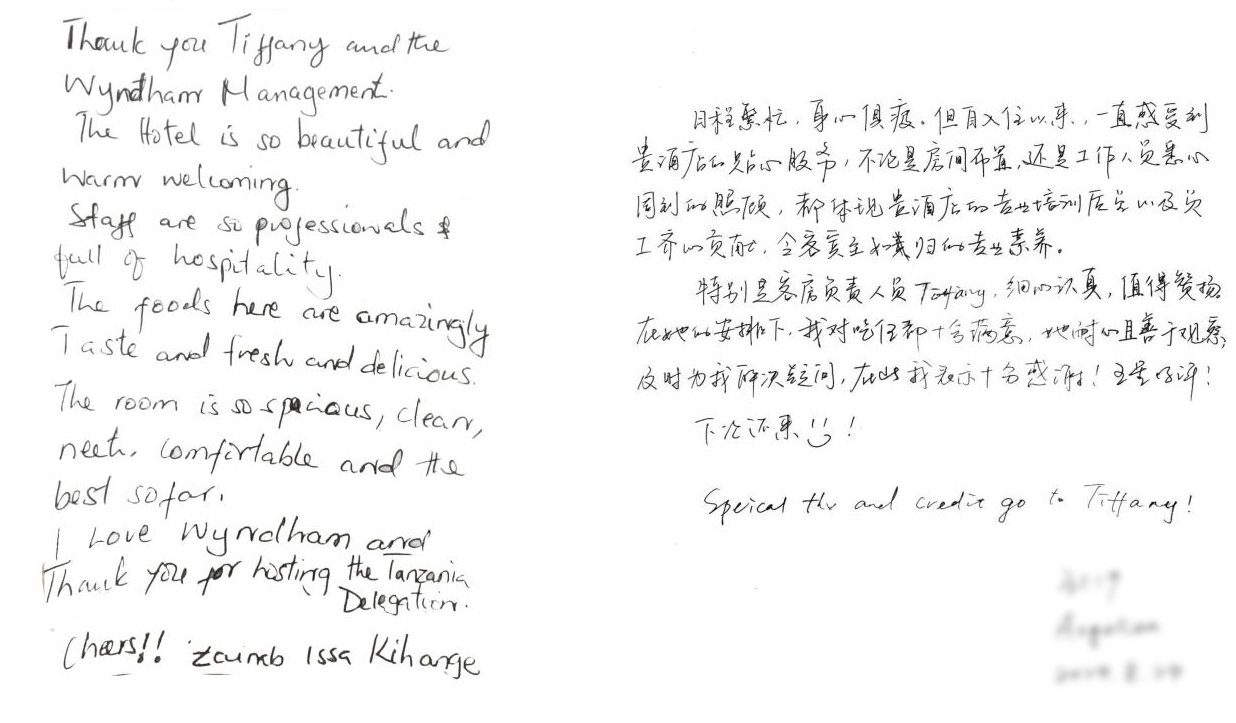 Thank you Tiffany and the
Wyndham Management.
The Hotel is so beautiful and
warm welcoming.
Staff are so professionals &
full of hospitality.
The foods here are amazingly
Taste and fresh and delicious.
The room is so spacious, clean,
neat, comfirtable and the
best so far.
I Love Wyndham and
Thank you for hosting the Tanzania
Delegation.
Cheers!! Zainab Issa Kihange
日程繁忙，身心俱疲。但自入住以来，一直感受到
贵酒店的贴心服务，不论是房间布置，还是工作人员悉心
周到的照顾，都体现贵酒店的专业培训以及员
工齐心贡献，令客宾至如归的专业素养。
特别是客房负责人员Tiffany，细心认真，值得赞扬
在她的安排下，我对吃住都十分满意，她耐心且善于观察，
及时为我解决疑问，在此我表示十分感谢！五星好评！
下次还来！
Speical thx and credit go to Tiffany!